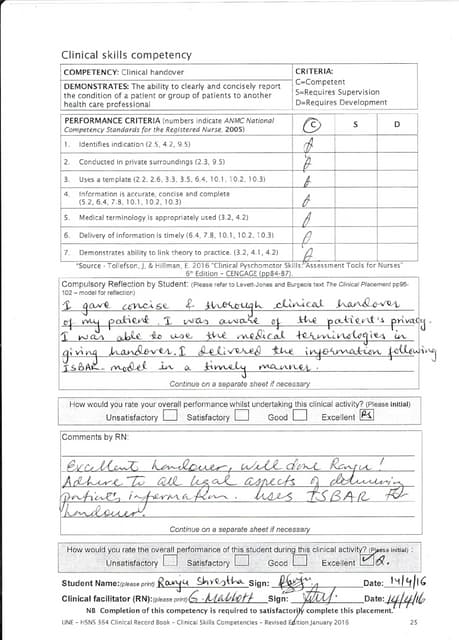 Clinical skills competency
COMPETENCY: Clinical handover
DEMONSTRATES: The ability to clearly and concisely report
the condition of a patient or group of patients to another
health care professional
CRITERIA:
C=Competent
S=Requires Supervision
D=Requires Development
PERFORMANCE CRITERIA (numbers indicate ANMC National
Competency Standards for the Registered Nurse, 2005)
C S D
1. Identifies indication (2.5, 4.2, 9.5)
2. Conducted in private surroundings (2.3, 9.5)
3. Uses a template (2.2, 2.6, 3.3, 3.5, 6.4, 10.1, 10.2, 10.3)
4. Information is accurate, concise and complete
(5.2, 6.4, 7.8, 10.1, 10.2, 10.3)
5. Medical terminology is appropriately used (3.2, 4.2)
6. Delivery of information is timely (6.4, 7.8, 10.1, 10.2, 10.3)
7. Demonstrates ability to link theory to practice. (3.2, 4.1, 4.2)
*Source - Tollefson, J, & Hillman, E. 2016 "Clinical Pyschomotor Skills: Assessment Tools for Nurses"
6th Edition – CENGAGE (pp84-87).
Compulsory Reflection by Student: (Please refer to Levett-Jones and Burgeois text The Clinical Placement pp95-
102 – model for reflection)
I gave concise & thorough clinical handover
of my patient. I was aware of the patient's privacy.
I was able to use the medical terminologies in
giving handover. I delivered the information following
ISBAR model in a timely manner.
Continue on a separate sheet if necessary
How would you rate your overall performance whilst undertaking this clinical activity? (Please initial)
Unsatisfactory Satisfactory Good Excellent RS
Comments by RN:
Excellent handover, well done Ranju!
Adhere to all legal aspects of delivering
patient's information. Uses ISBAR for
handover.
Continue on a separate sheet if necessary
How would you rate the overall performance of this student during this clinical activity? (Please initial) :
Unsatisfactory Satisfactory Good Excellent
Student Name:(please print) Ranju Shrestha Sign: Ranju Date: 14/4/16
Clinical facilitator (RN):(please print) G. Mabbott Sign: Date: 14/4/16
NB Completion of this competency is required to satisfactorily complete this placement.
UNE – HSNS 364 Clinical Record Book – Clinical Skills Competencies – Revised Edition January 2016 25